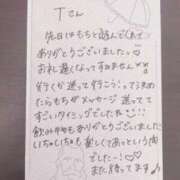 Tさん
先日はもちと遊んでくれて
ありがとうございました!!♡
お礼遅くなってすみません
行くか迷って行こう!って決め
たらもちがメッセージ送って
すごいタイミングでした
飲み物もありがとうございました
いちゃいちゃも 楽しくてあっという間
でした…!♡
また待ってます♪